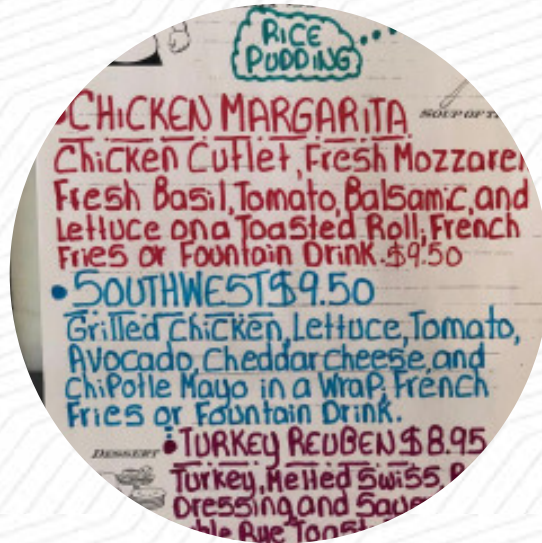 RICE
PUDDING
CHICKEN MARGARITA
SOUP OF
Chicken Cutlet, Fresh Mozzarel
Fresh Basil, Tomato, Balsamic, and
Lettuce on a Toasted Roll, French
Fries or Fountain Drink. $9.50
• SOUTHWEST $9.50
Grilled Chicken, Lettuce, Tomato,
Avocado, Cheddar cheese, and
Chipotle Mayo in a Wrap, French
Fries or Fountain Drink.
DESSERT
• TURKEY REUBEN $8.95
Turkey, Melted Swiss,
Dressing and
Rye Toast